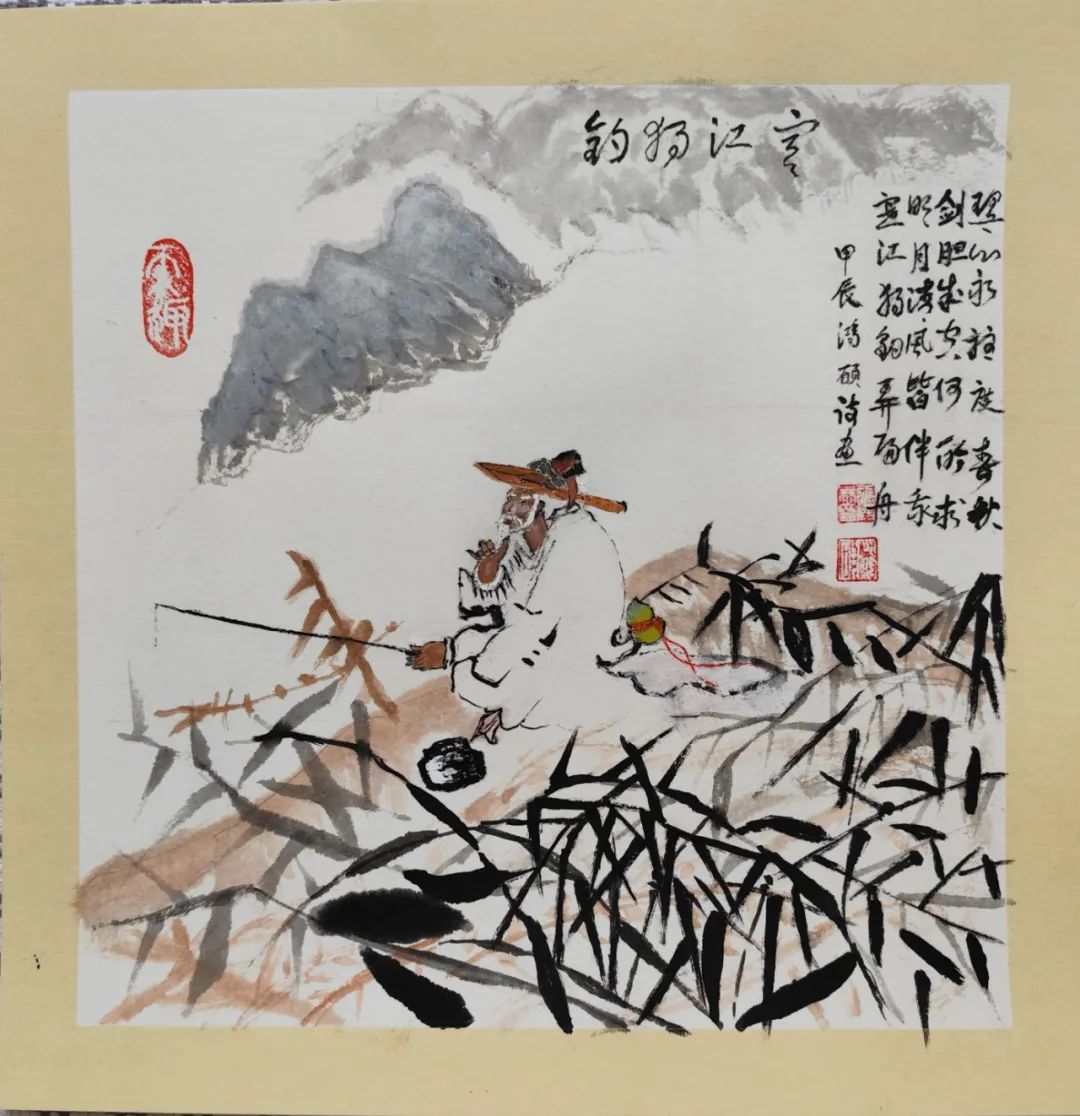 寒江独钓
琴心永驻度春秋
剑胆成空何所求
明月清风皆伴我
寒江独钓弄扁舟
甲辰鸿硕诗画